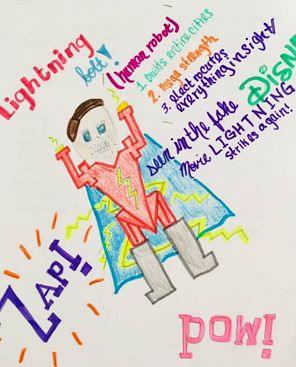 Lightning
bolt!
(human robot)
1. builds entire cities
2. mega strength
3. electrocutes
everything insight!
Seen in the fake
Disn
Movie LIGHTNING
strikes again!
ZAP!
pow!